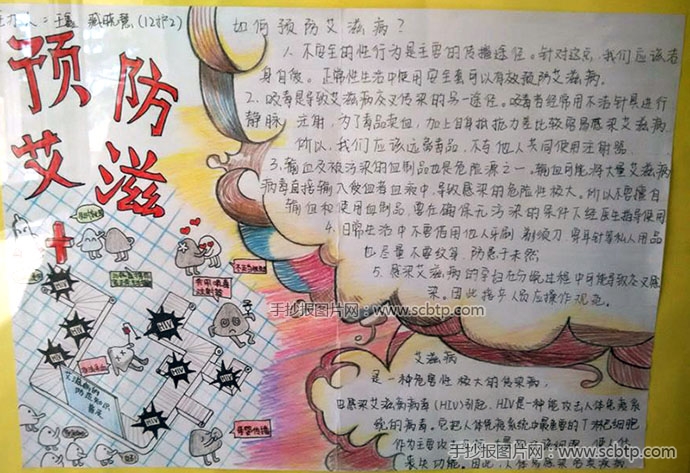 预防
艾滋
如何预防艾滋病?
1. 不安全的性行为是主要的传播途径。针对这点,我们应该洁
身自傲。正常性生活中使用安全套可以有效预防艾滋病。
2. 吸毒是导致艾滋病灰叉传染的另一途径。吸毒者经常用不洁针具进行
静脉注射,为了毒品卖血,加上自身抵抗力差比较容易感染艾滋病
所以,我们应该远离毒品,不与他人共同使用注射器
3. 输血及被污染的血制品也是危险源之一。输血可能将大量艾滋病
病毒直接输入受血者血液中,导致感染的危险性极大。所以不要擅自
输血和使用血制品,要在确保无污染的条件下经医生指导使用
4. 日常生活中不要借用他人牙刷、剃须刀、穿耳针等私人用品
也尽量不要纹身,防患于未然
5. 感染艾滋病的孕妇在分娩过程中可能导致交叉感
染。因此指导人员应操作规范。
手抄报图片网:www.scbtp.com
手抄报图片网:www.scbtp.com
艾滋病
是一种危害性极大的传染病
由感染艾滋病病毒(HIV)引起,HIV是一种能攻击人体免疫系
统的病毒。它把人体免疫系统中最重要的T淋巴细胞
作为主要攻击
丧失功能。因此,人体
HIV
HIV
HIV
HIV
HIV
艾滋病的
防范知识
母婴传播
手抄报图片网:www.scbtp.com